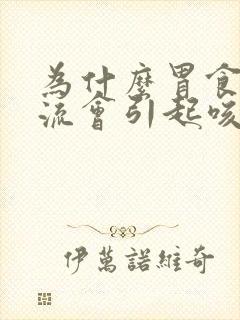 为什麼胃食
流會引起咳
伊萬諾維奇